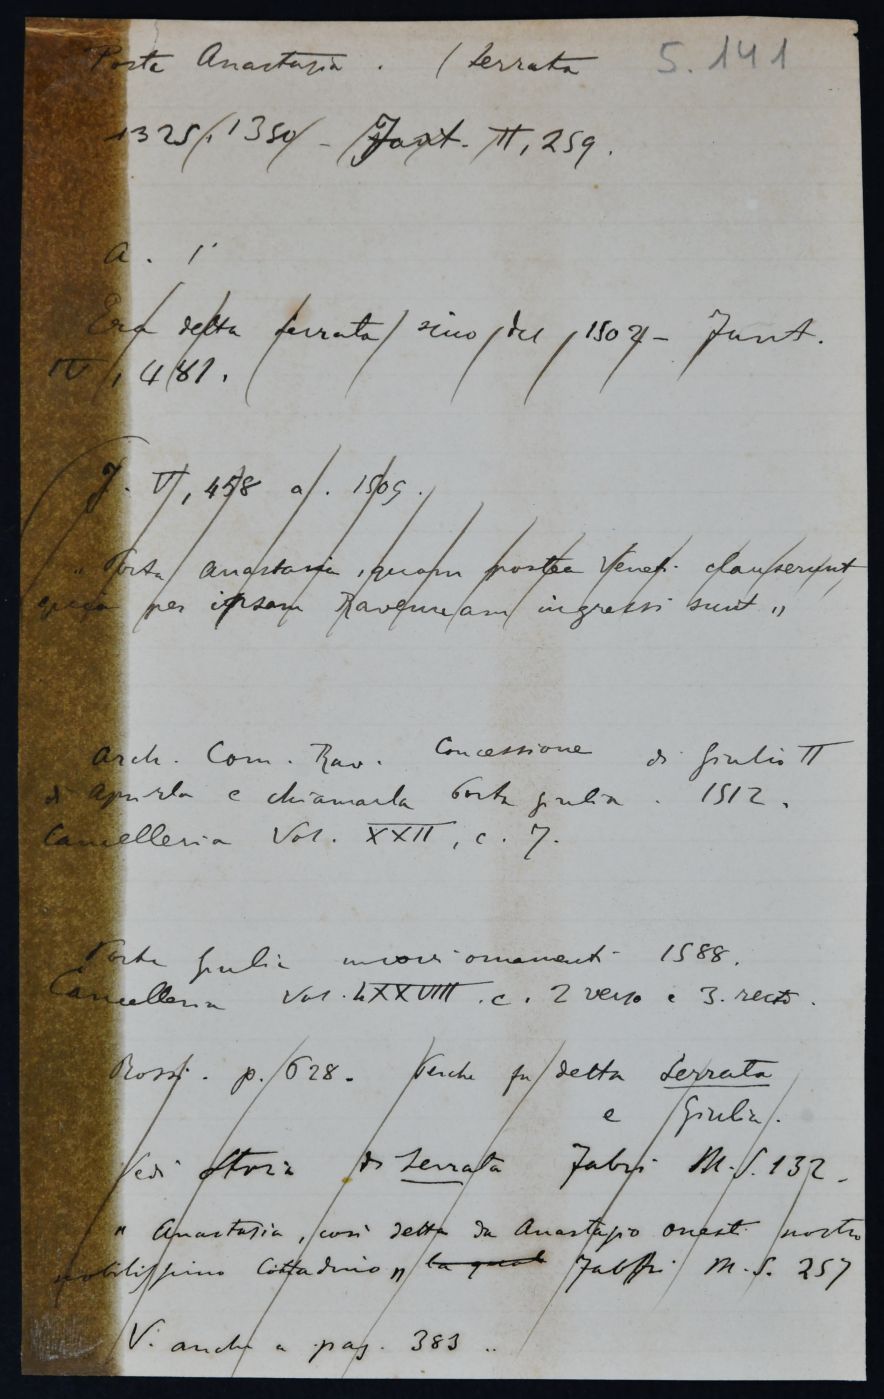 Porta Anastasia . (Serrata 5. 141
1325, 1350 - Fant. II, 259.
a. 1
Era detta serrata sino del 1502 - Fant.
IV, 481.
F. VI, 458 a. 1509.
" Porta Anastasia, quam postea Veneti clauserunt
quia per ipsam Ravennam ingressi sunt "
Arch. Com. Rav. Concessione di Giulio II
di aprirla e chiamarla Porta Giulia . 1512.
Cancelleria Vol. XXII, c. 7.
Porta Giulia nuovi ornamenti 1588.
Cancelleria Vol. LXXVIII . c. 2 verso e 3. recto.
Rossi. p. 628. Perche fu detta Serrata
e Giulia.
Vedi Storia di Serrata Fabri M. S. 132.
" Anastasia, così detta da Anastasio onesti nostro
nobilissimo Cittadino " la quale Fabbri M. S. 257
V. anche a pag. 383 ..